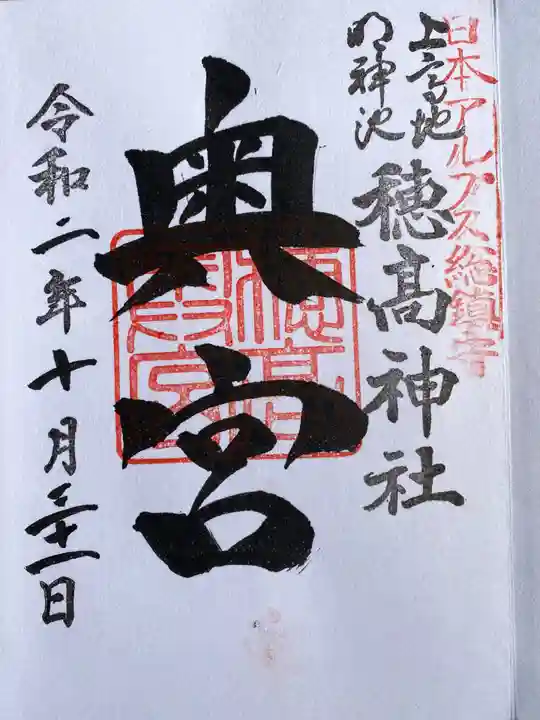 日本アルプス総鎮守
上高地
明神池
穂高神社
奥宮
穂高
奥宮
令和二年十月三十一日